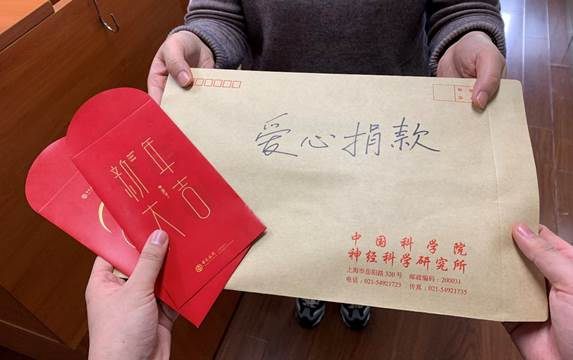 爱心捐款
中国科学院
神经科学研究所
上海市岳阳路 320 号 邮政编码：200031
电话：021-54921723 传真：021-54921735
新年
大吉